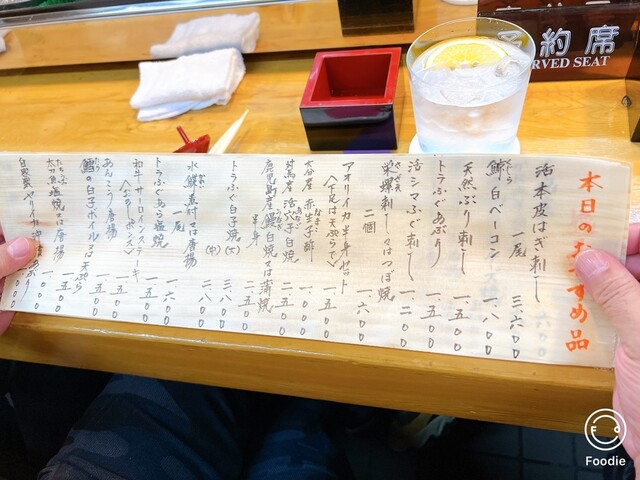 予約席
RVED SEAT
本日のおすすめ品
活本皮はぎ刺し
一尾 三、六〇〇
鯨白ベーコン
一、八〇〇
天然ぶり刺し
一、五〇〇
トラふぐあぶり
二、五〇〇
活シマふぐ刺し
一、二〇〇
栄螺刺し又はつぼ焼
二個 一、六〇〇
アオリイカ半身セット
〈下足は天ぷらで〉 一、五〇〇
大谷産 赤生子酢 一、〇〇〇
対馬産 活穴子白焼 二、五〇〇
鹿児島産 鰻白焼又は蒲焼
半身 二、五〇〇
トラふぐ白子焼(大) 三、八〇〇
(中) 二、八〇〇
水鰈煮村又は唐揚
一尾 一、六〇〇
トラふぐあら塩焼
一、五〇〇
和牛サーロインステーキ
一、五〇〇
あんこう唐揚
一、〇〇〇
鱈白子ポイル又は天ぷら
一、五〇〇
太刀魚塩焼又は唐揚
一、〇〇
自家製ヤリイカ沖
Foodie